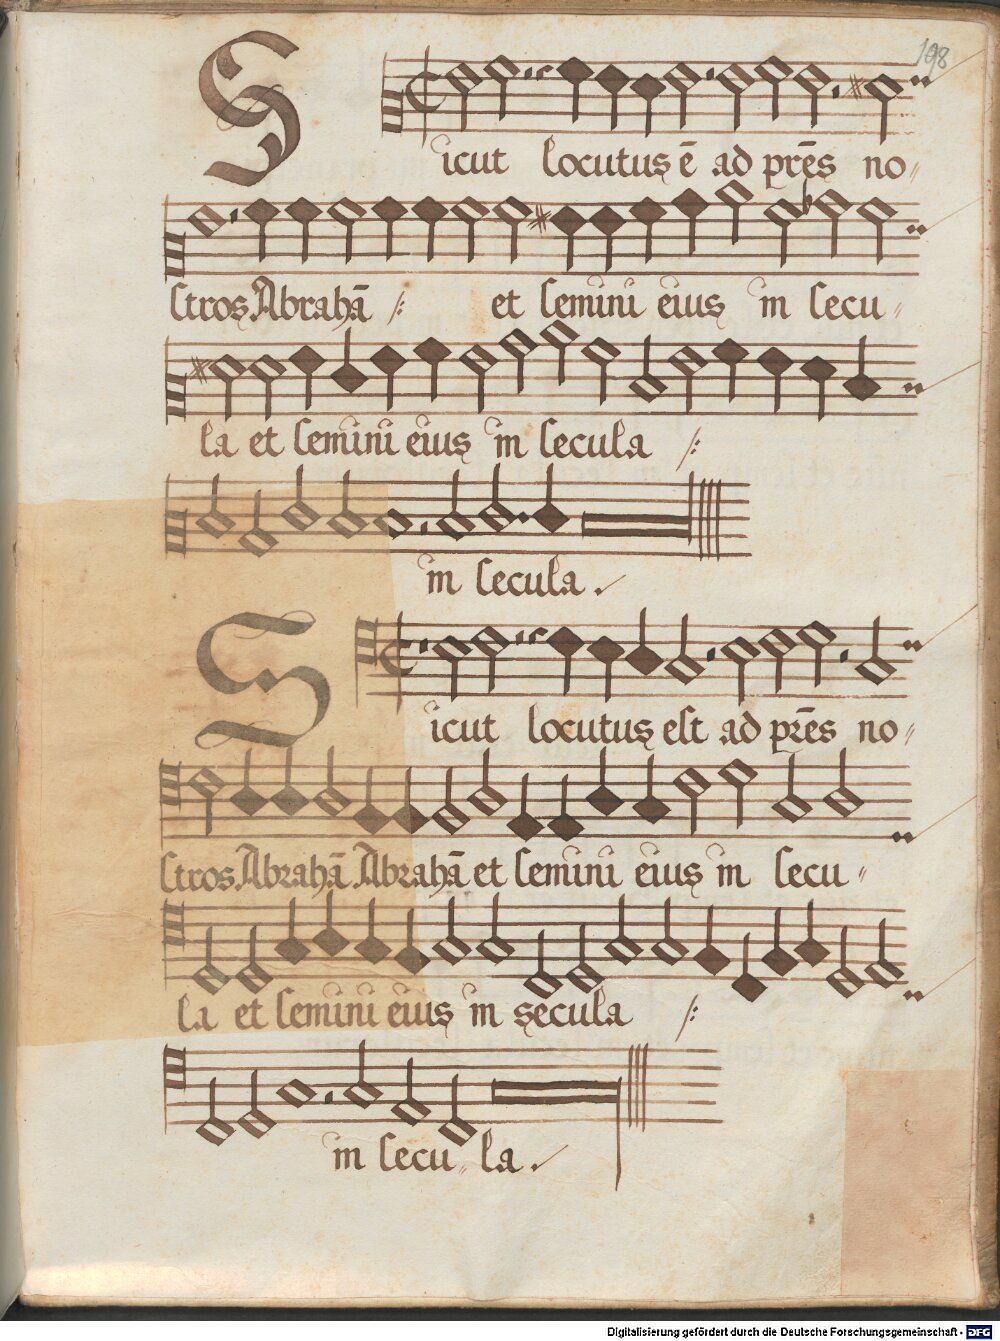 198
Sicut locutus ē ad prēs no-
stros Abrahā /: et semini eius in secu-
la et semini eius in secula /:
in secula.
Sicut locutus est ad prēs no-
stros Abrahā Abrahā et semini eius in secu-
la et semini eius in secula /:
in secu-la.
Digitalisierung gefördert durch die Deutsche Forschungsgemeinschaft - DFG